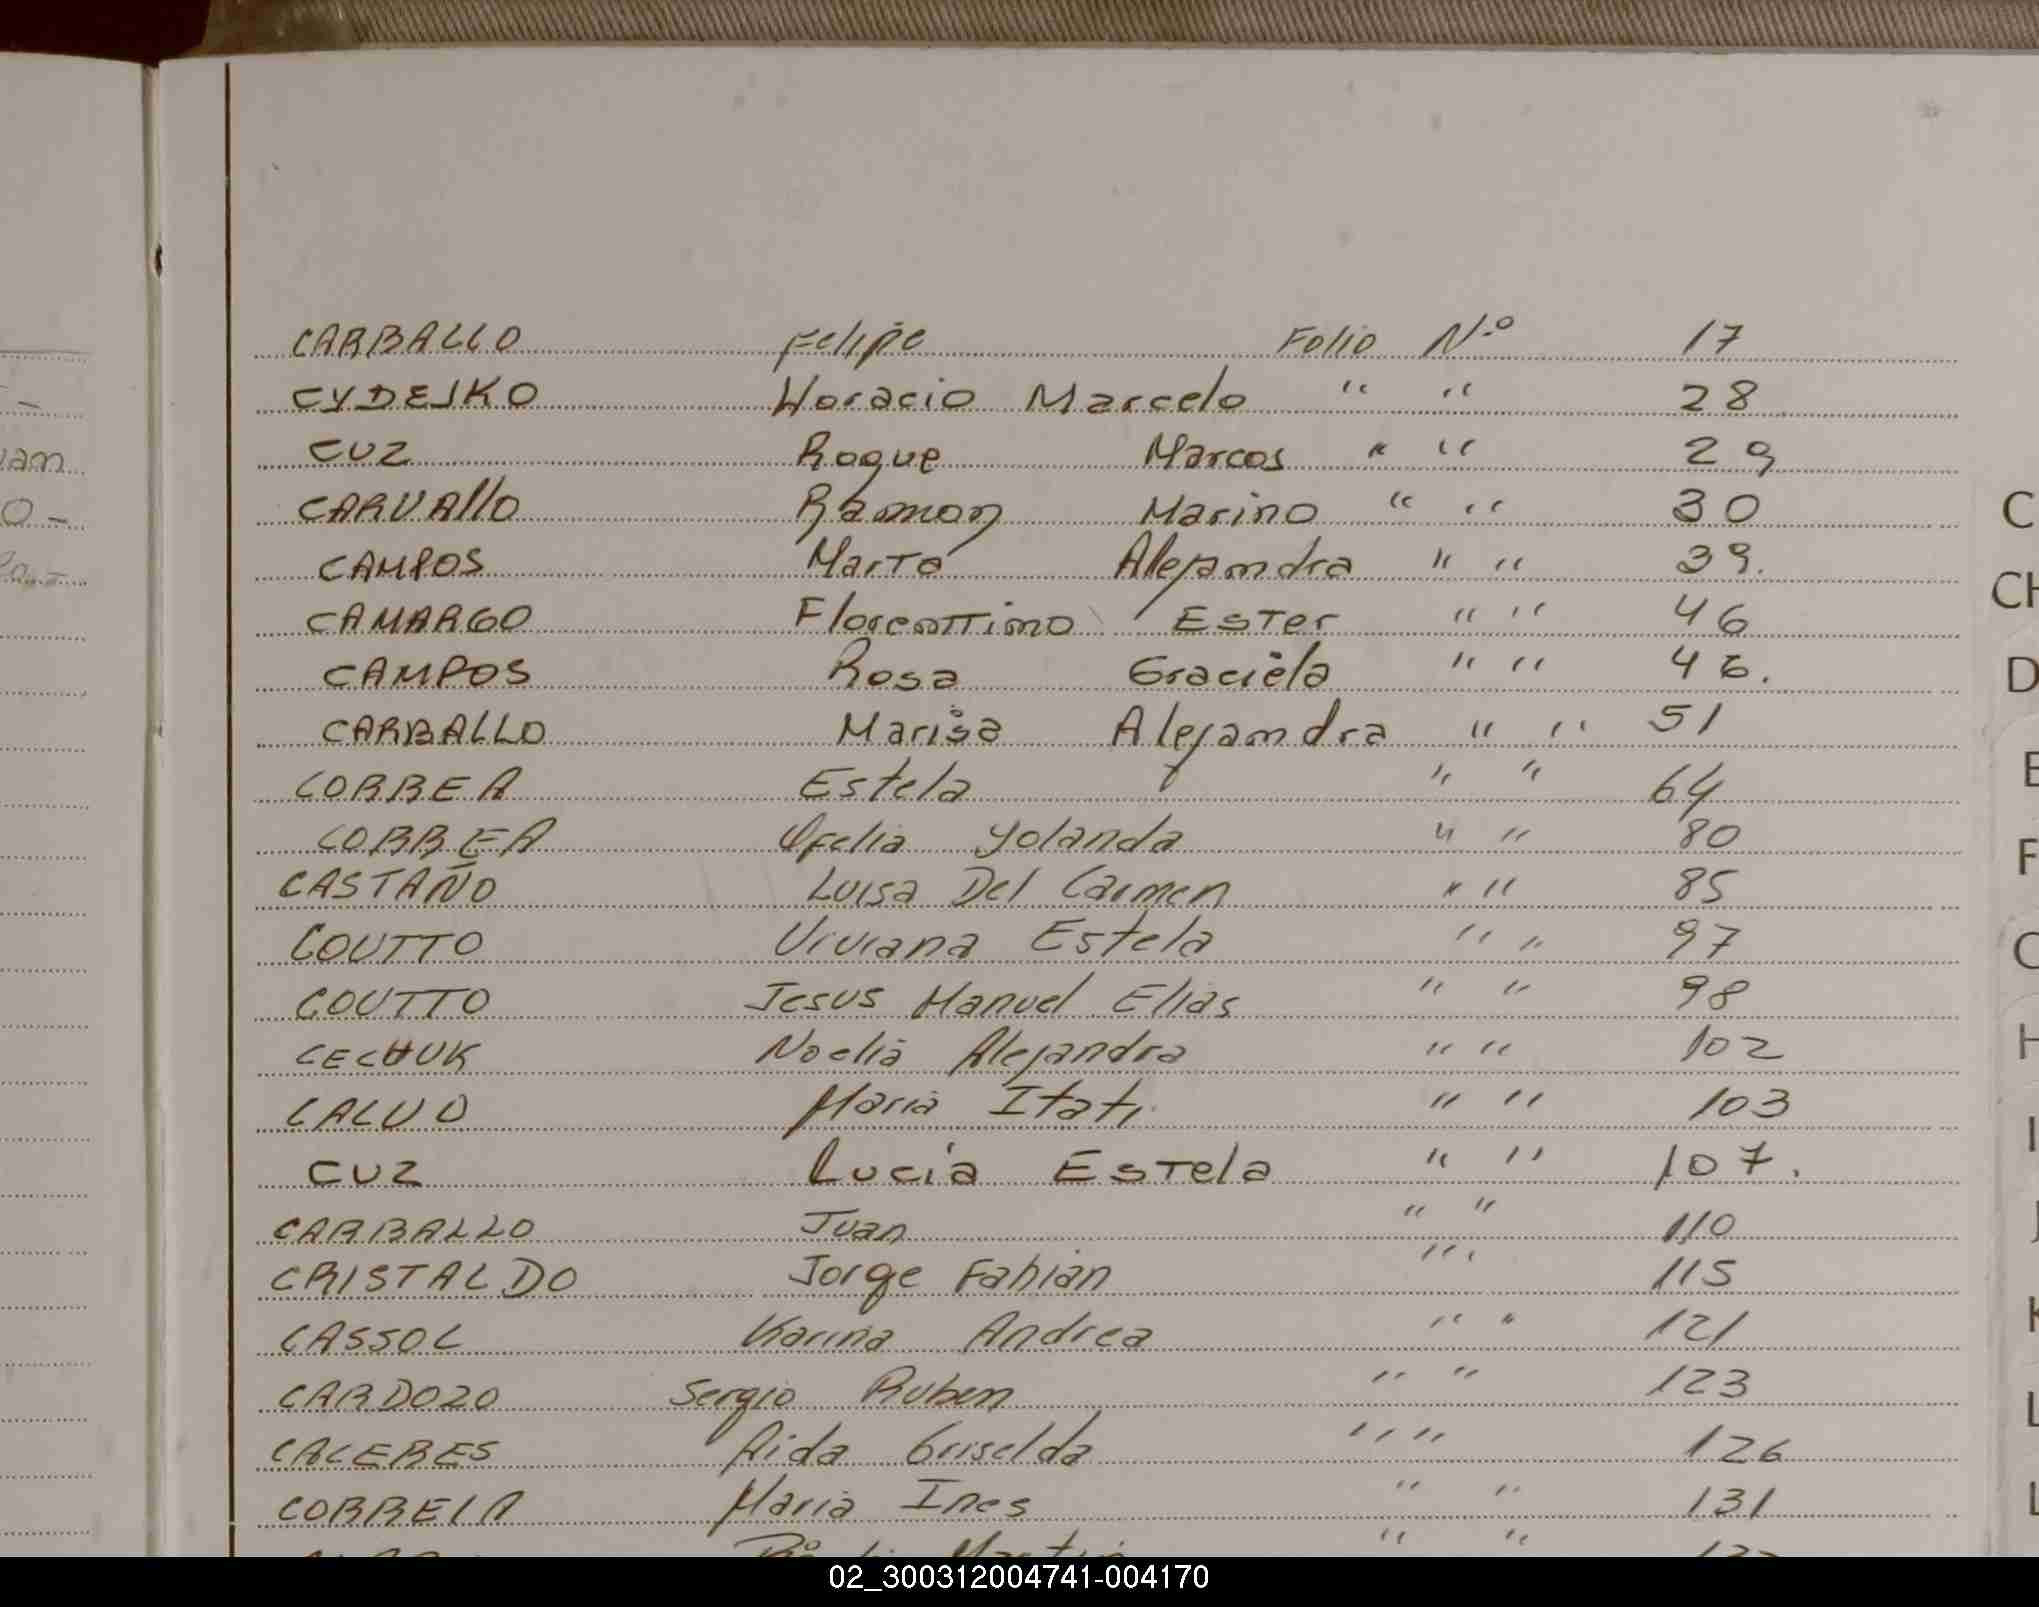 CARBALLO Felipe Folio N.º 17
CYDEJKO Horacio Marcelo " " 28
CUZ Roque Marcos " " 29
CARVAllO Ramon Marino " " 30
CAMPOS Marta Alejandra " " 39.
CAMARGO Florentino Ester " " 46
CAMPOS Rosa Graciela " " 46.
CARBALLO Marisa Alejandra " " 51
CORREA Estela " " 64
CORREA Ofelia Yolanda " " 80
CASTAÑO Luisa Del Carmen " " 85
COUTTO Viviana Estela " " 97
COUTTO Jesus Manuel Elias " " 98
CECHUK Noelia Alejandra " " 102
CALVO Maria Itati " " 103
CUZ Lucia Estela " " 107.
CARBALLO Juan " " 110
CRISTALDO Jorge Fabian " " 115
CASSOL Karina Andrea " " 121
CARDOZO Sergio Ruben " " 123
CACERES Aida Griselda " " 126
CORREIA Maria Ines " " 131
C
CH
D
E
F
H
I
J
K
L
L
02_300312004741-004170